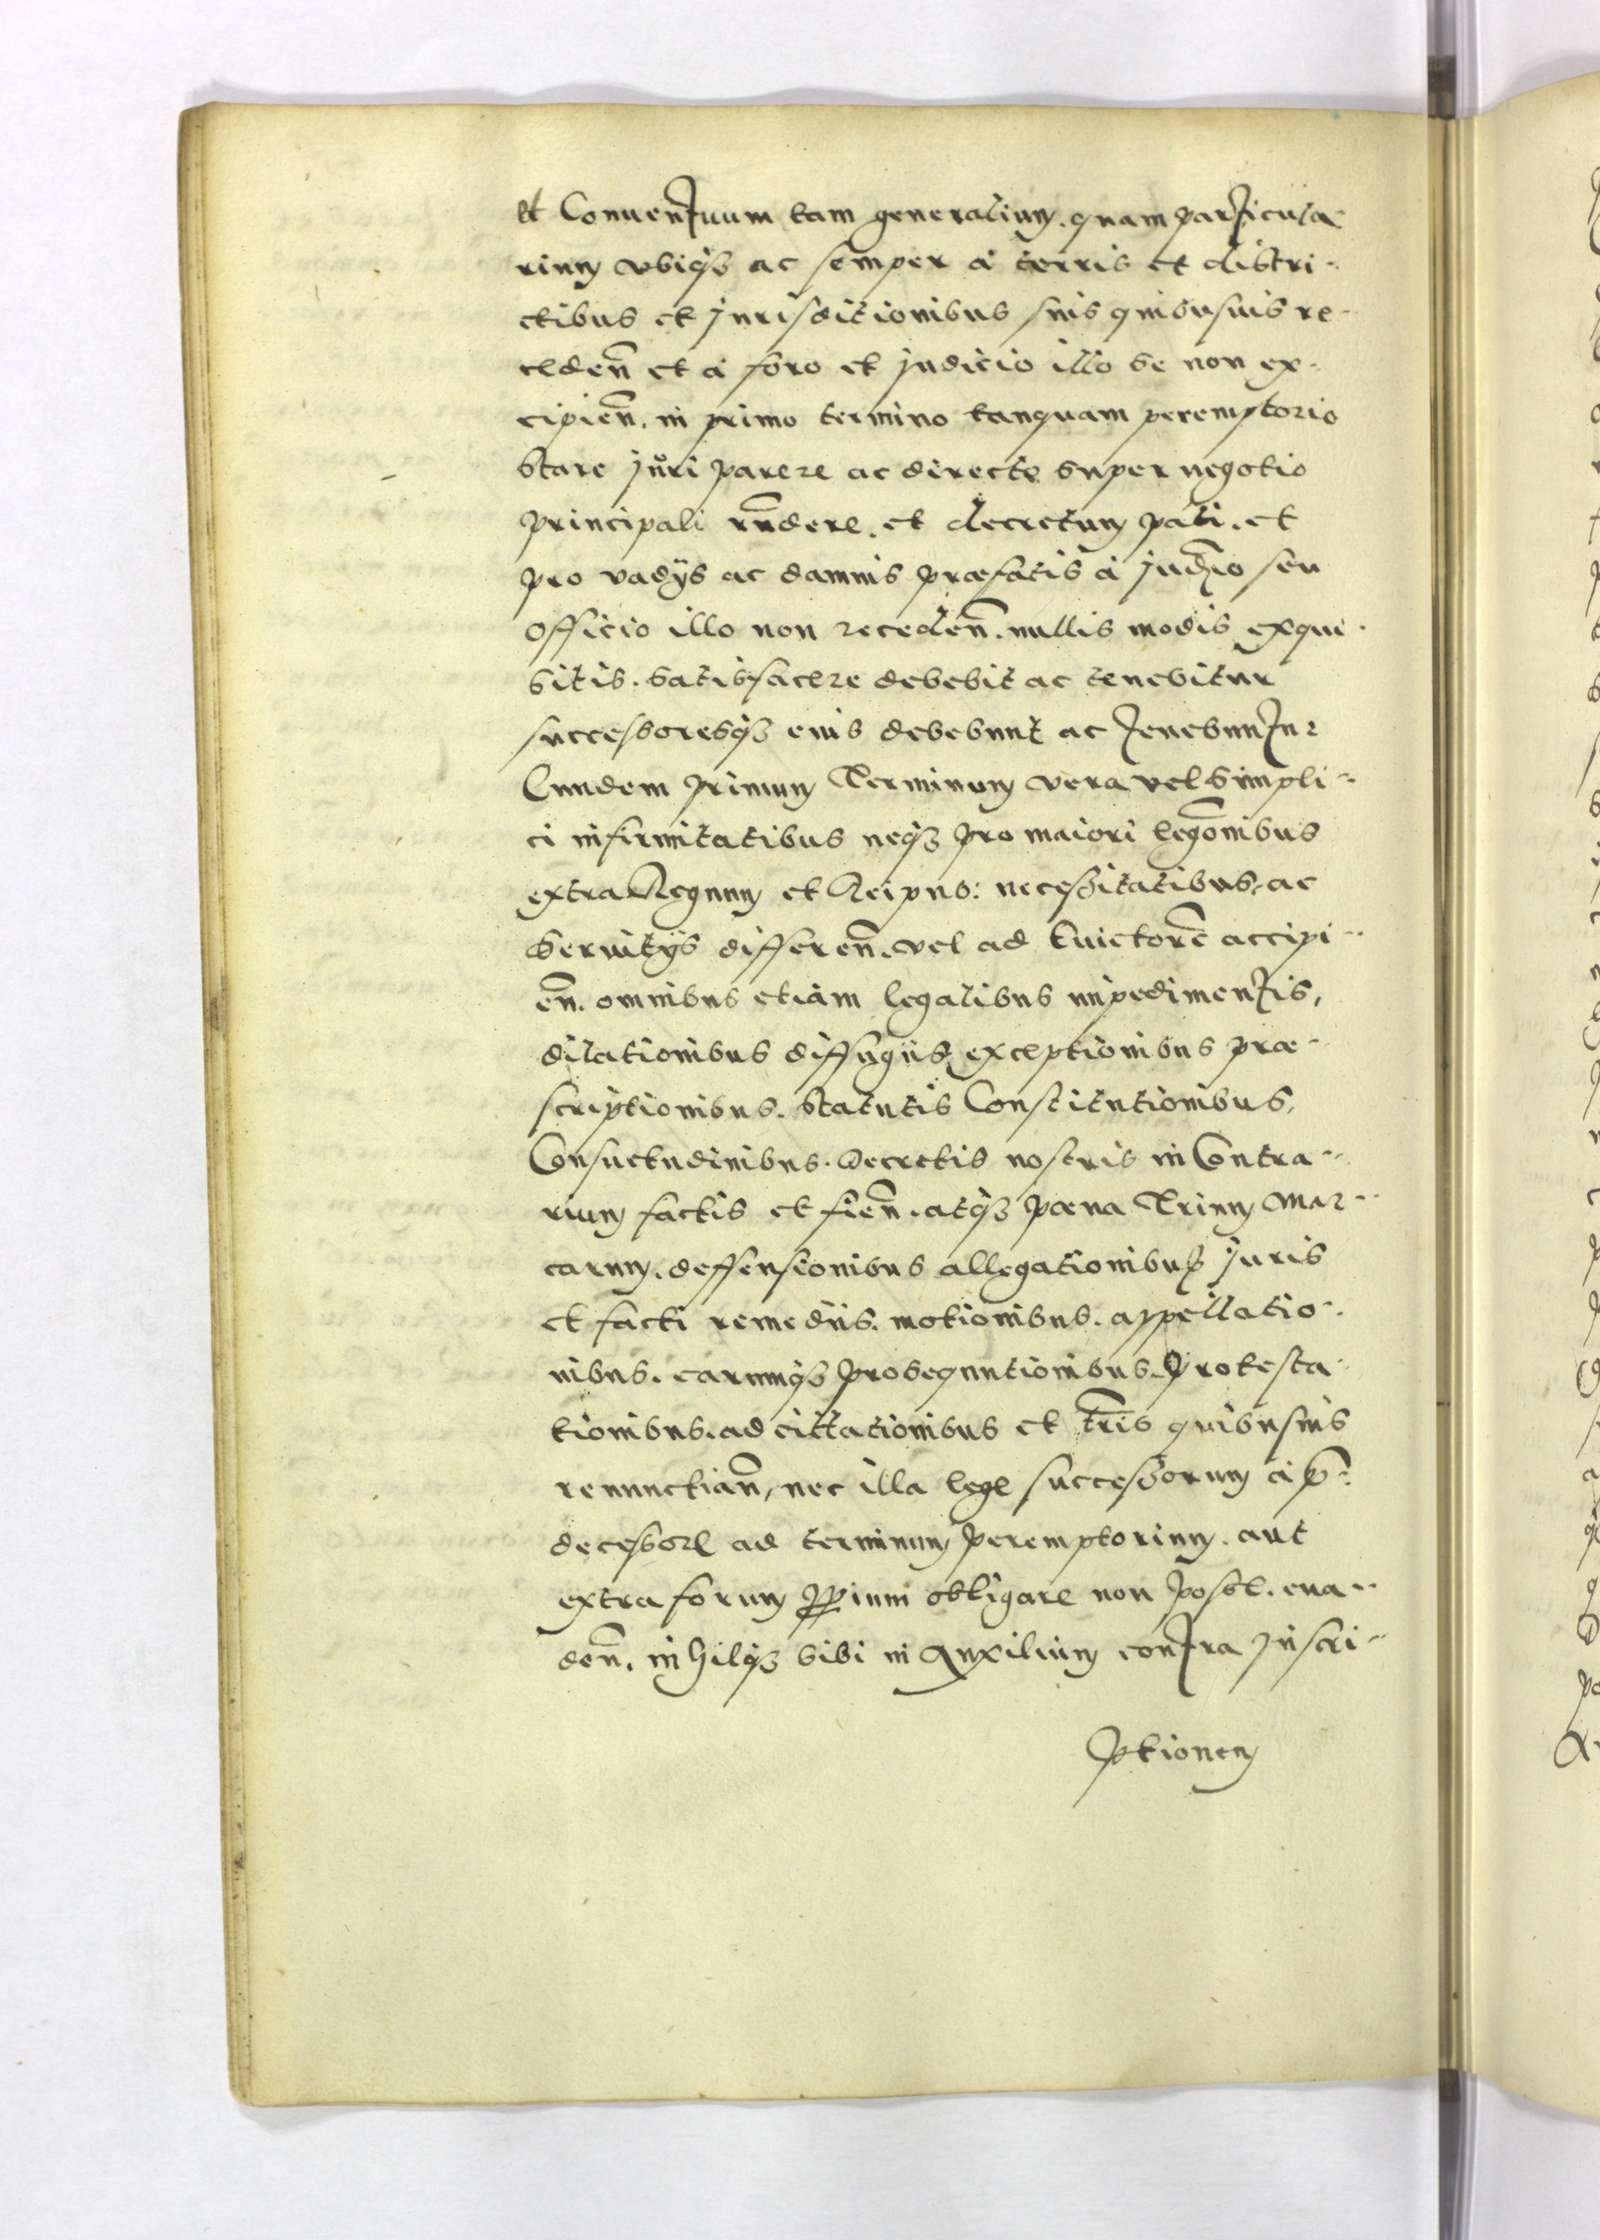 et Conuentuum tam generalium. quam particula-
rium vbiq3 ac semper à terris et distri-
ctibus et jurisditionibus suis quibusuis re-
ceden̄ et à foro et judicio illo se non ex-
cipien̄. in primo termino tanquam peremptorio
stare juri parere ac directe super negotio
principali rn̄dere. et decretum pati. et
pro vadijs ac damnis præfatis à judīo seu
officio illo non receden̄. nullis modis exqui-
sitis. satisfacere debebit ac tenebitur
successoresq3 eius debebunt ac tenebuntur
Eundem primum Terminum vera vel simpli-
ci infirmitatibus neq3 pro maiori leḡonibus
extra Regnum et Reipub: necessitatibus, ac
seruitijs differen̄. vel ad Euictorē accipi-
en̄. omnibus etiam legalibus impedimentis,
dilationibus diffugijs, exceptionibus præ-
scriptionibus. statutis Constitutionibus,
Consuetudinibus. decretis nostris in Contra-
rium factis et fien̄. atq3 pœna Trium Mar-
carum. deffensionibus allegationibus juris
et facti remedijs. motionibus. appellatio-
nibus. earumq3 prosequutionibus. protesta-
tionibus. ad cittationibus et tr̄is quibusuis
renunctian̄, nec illa lege successorum à p̄-
decessore ad terminum peremptorium. aut
extra forum ꝓprium obligare non posse. eua-
den̄. inhilq3 sibi in Auxilium contra Inscri-
ptionem